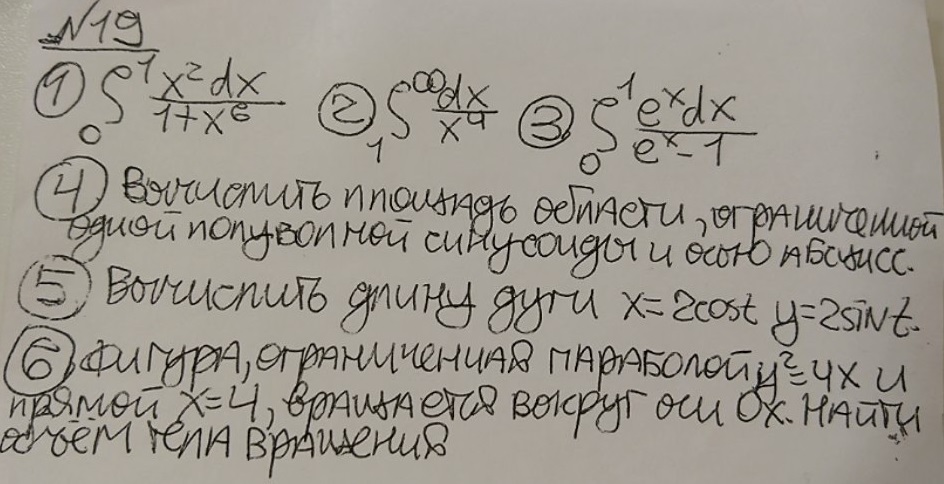 №19
① ∫₀¹ x²dx/(1+x⁶) ② ∫₁^∞ dx/x⁴ ③ ∫₀¹ eˣdx/(eˣ-1)
④ Вычислить площадь области, ограниченной
одной полуволной синусоиды и осью абсцисс.
⑤ Вычислить длину дуги x=2cost y=2sint.
⑥ Фигура, ограниченная параболой y²=4x и
прямой x=4, вращается вокруг оси Ox. Найти
объём тела вращения